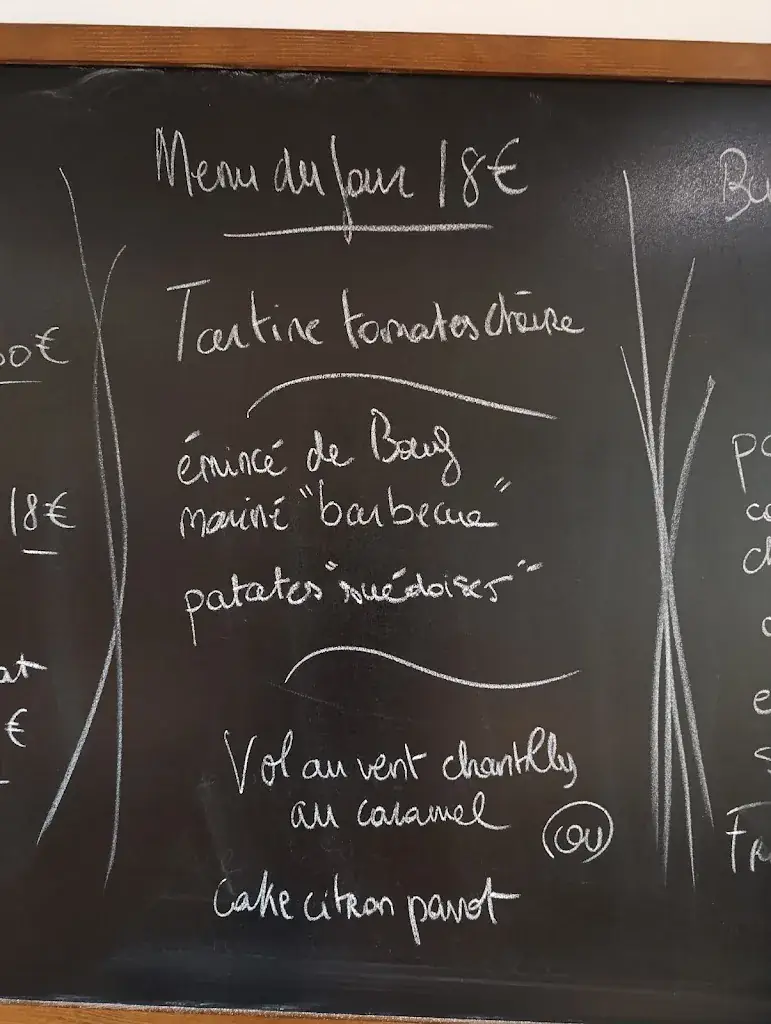 Menu du Jour 18€
Tartine tomates chèvre
émincé de Bœuf
mariné "barbecue"
patates "suédoises"
Vol au vent chantilly
au caramel
ou
cake citron pavot
00€
18€
at
€
Bu